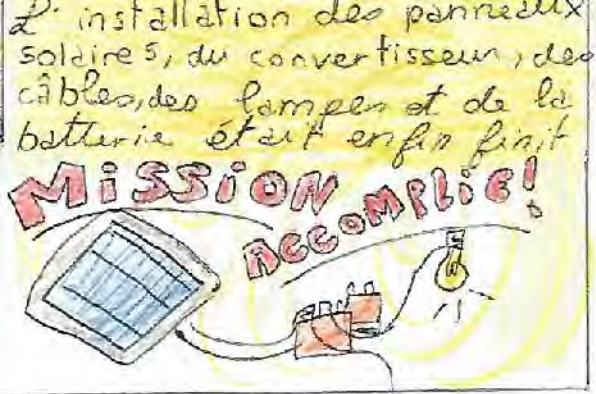 L'installation des panneaux
solaires, du convertisseur, des
câbles, des lampes et de la
batterie était enfin finit
MiSSiON
ACCOMPLIE!